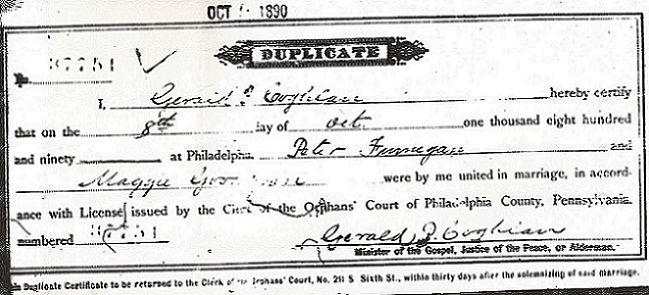 OCT 1890
DUPLICATE
No. 37751
I, Gerald P. Coghlan hereby certify
that on the 8th day of Oct. one thousand eight hundred
and ninety at Philadelphia, Peter Finnegan and
Maggie were by me united in marriage, in accord-
ance with License issued by the Clerk of the Orphans' Court of Philadelphia County, Pennsylvania
numbered 37751 Gerald P. Coghlan
Minister of the Gospel, Justice of the Peace, or Alderman.
Duplicate Certificate to be returned to the Clerk of the Orphans' Court, No. 211 S Sixth St., within thirty days after the solemnizing of said marriage.